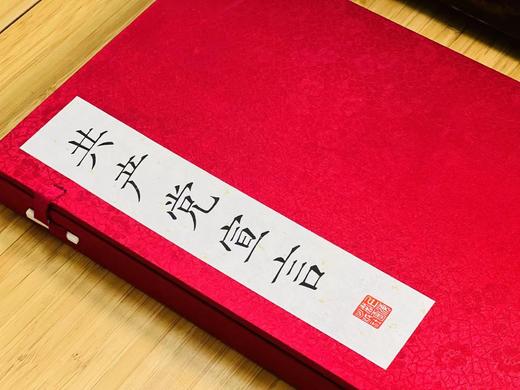 共产党宣言